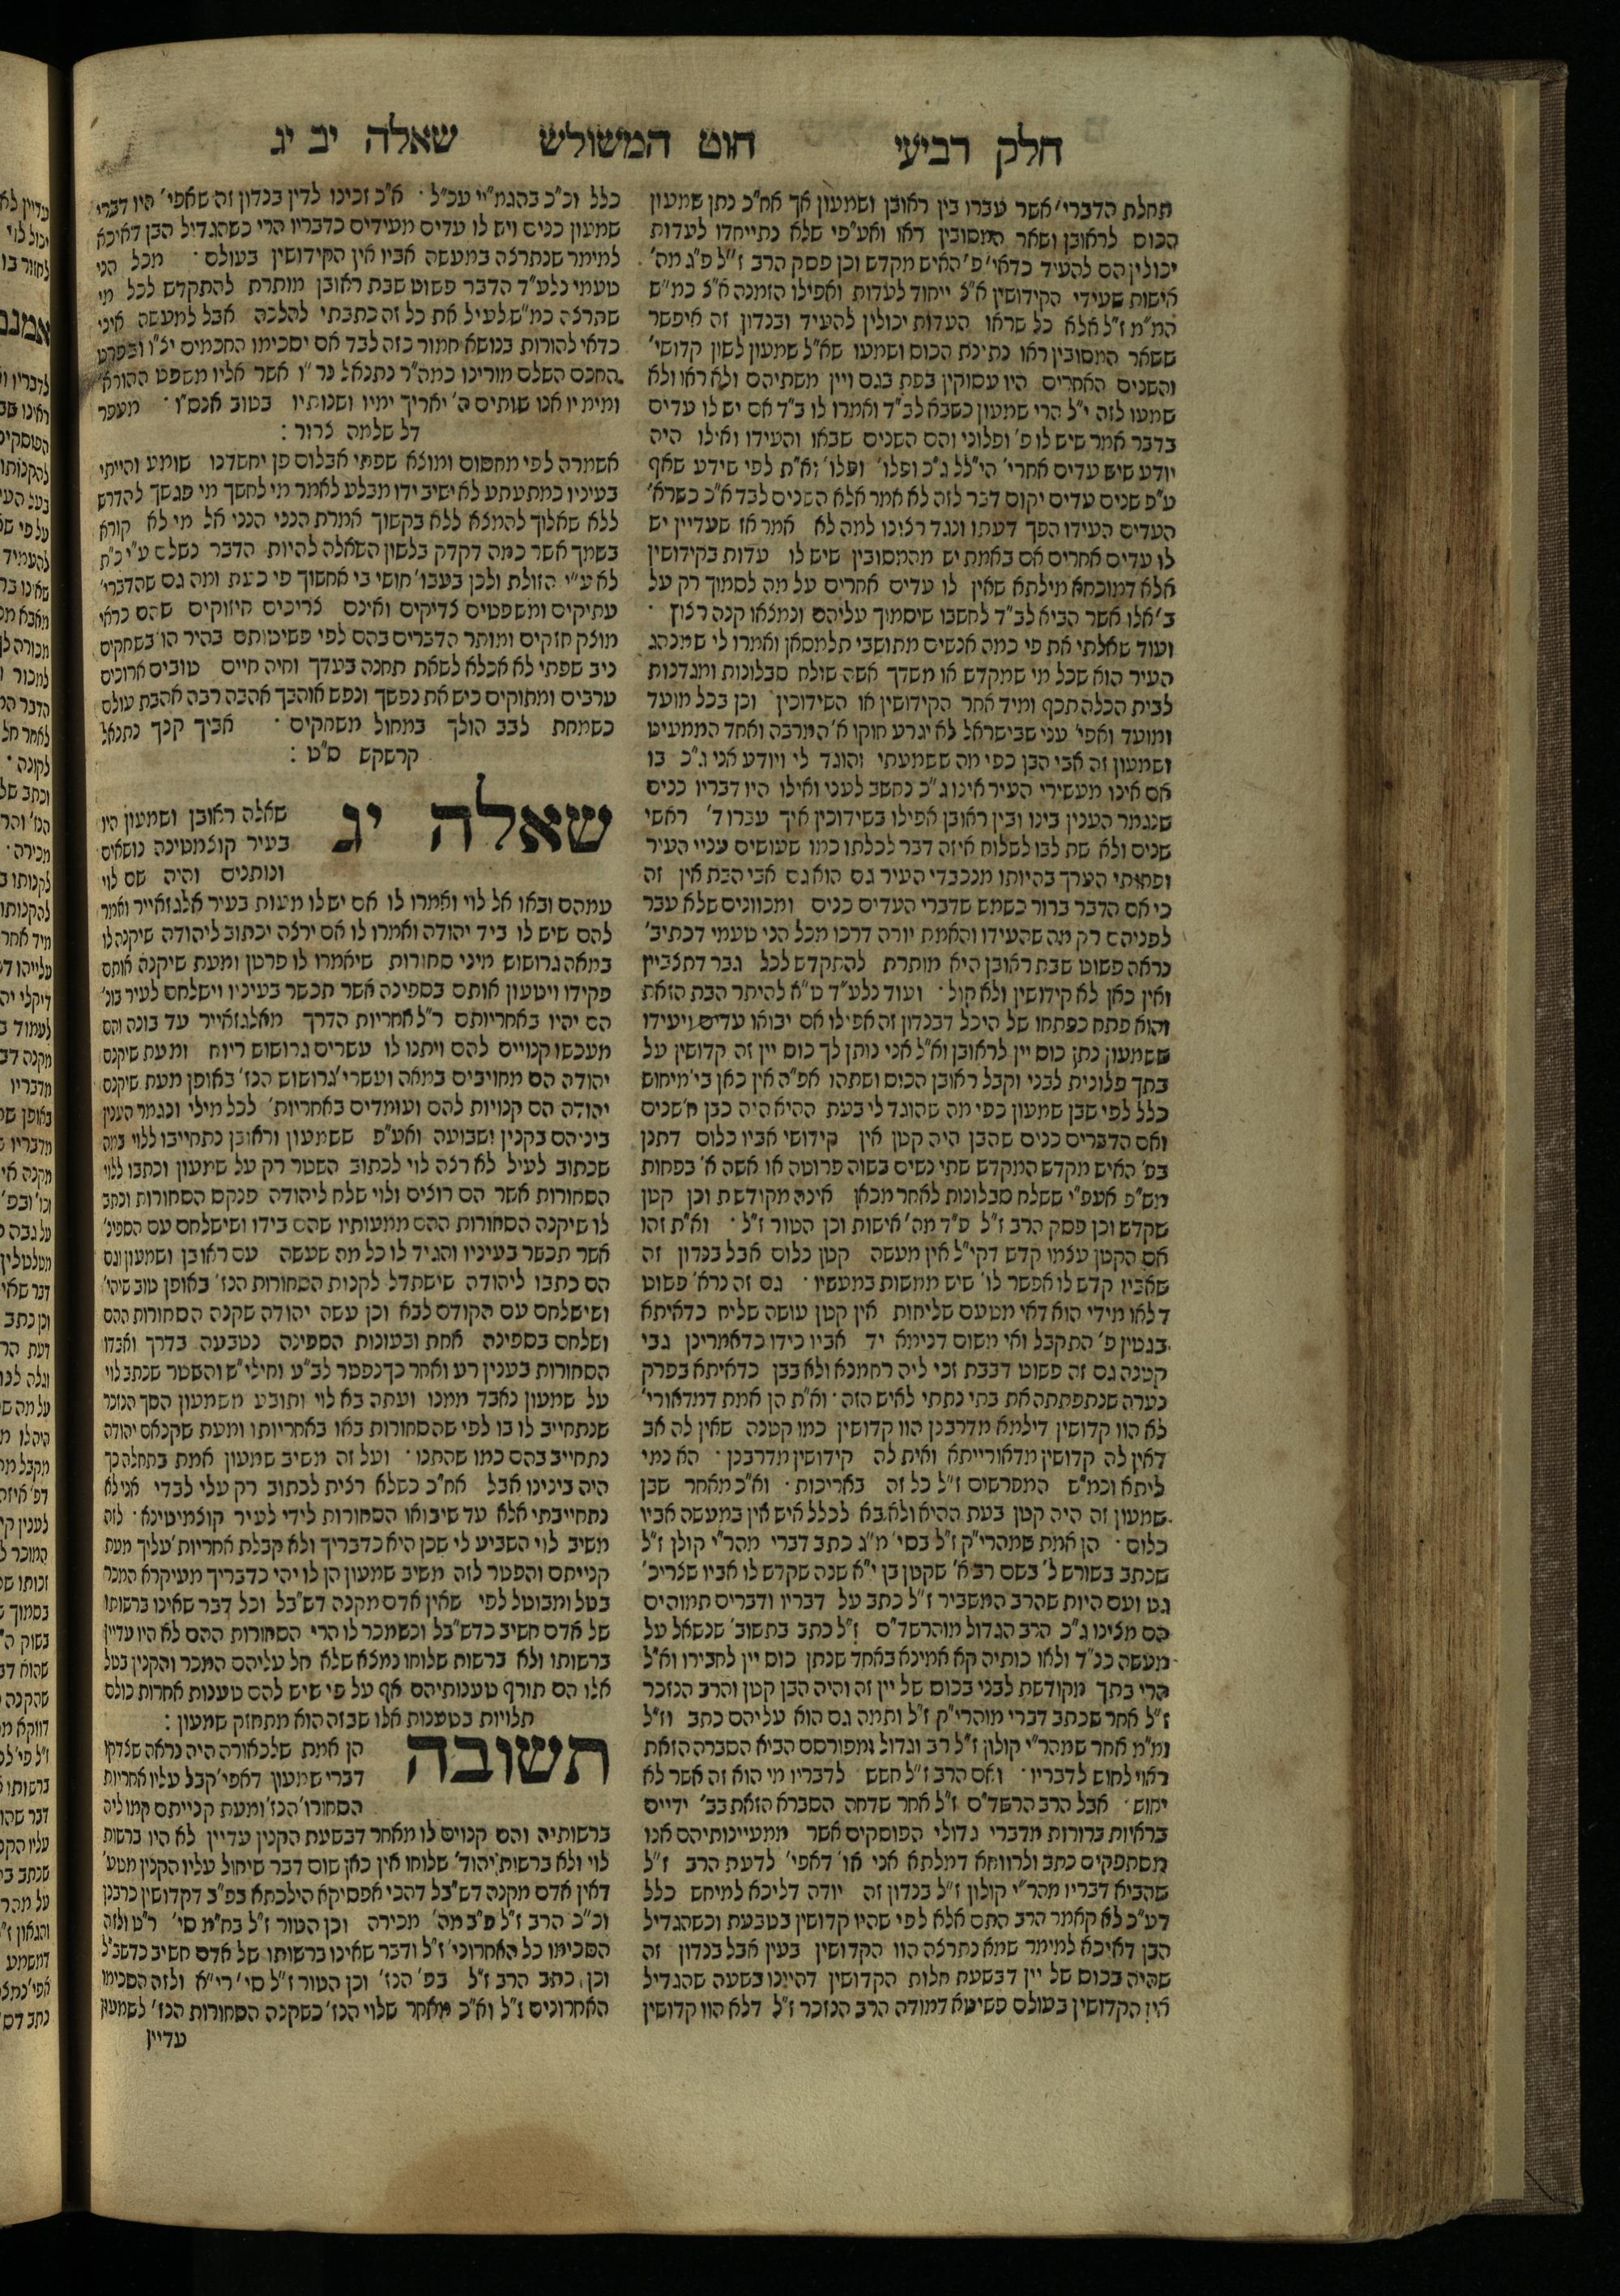 חלק רביעי חוט המשולש שאלה יב יג
תחלת הדברי' אשר עברו בין ראובן ושמעון אך אח"כ נתן שמעון
הכוס לראובן ושאר המסובין ראו ואע"פי שלא נתייחדו לעדות
יכולין הם להעיד כדאי' פ' האיש מקדש וכן פסק הרב ז"ל פ"ג מה'
אישות שעידי הקידושין א"צ ייחוד לעדות ואפילו הזמנה א"צ כמ"ש
המ"מ ז"ל אלא כל שראו העדות יכולין להעיד ובנדון זה איפשר
ששאר המסובין ראו נתינת הכוס ושמעו שא"ל שמעון לשון קדושי'
והשנים האחרים היו עסוקין בפת בגם ויין משתיהם ולא ראו ולא
שמעו לזה י"ל הרי שמעון כשבא לב"ד ואמרו לו ב"ד אם יש לו עדים
בדבר אמר שיש לו פ' ופלוני והם השנים שבאו והעידו ואילו היה
יודע שיש עדים אחרי' הי"לל ג"כ ופלו' ופלו' וא"ת לפי שידע שאף
ע"פ שנים עדים יקום דבר לזה לא אמר אלא השנים לבד א"כ כשרא'
העדים העידו הפך דעתו ונגד רצינו למה לא אמר אז שעדיין יש
לו עדים אחרים אם באמת יש מהמסובין שיש לו עדות בקידושין
אלא דמוכחא מילתא שאין לו עדים אחרים על מה לסמוך רק על
ב' אלו אשר הביא לב"ד לחשבו שיסמוך עליהם ונמצאו קנה רצון ·
ועוד שאלתי את פי כמה אנשים מתושבי תלמסאן ואמרו לי שמנהג
העיר הוא שכל מי שמקדש או משדך אשה שולח סבלונות ומגדנות
לבית הכלה תכף ומיד אחר הקידושין או השידוכין וכן בכל מועד
ומועד ואפי' עני שבישראל לא יגרע חוקו א' המרבה ואחד הממעיט
ושמעון זה אבי הבן כפי מה ששמעתי והוגד לי ויודע אני ג"כ בו
אם אינו מעשירי העיר אינו ג"כ נחשב לעני ואילו היו דבריו כנים
שנגמר הענין בינו ובין ראובן אפילו בשידוכין איך עברו ד' ראשי
שנים ולא שת לבו לשלוח איזה דבר לכלתו כמו שעושים עניי העיר
ופחותי הערך בהיותו מנכבדי העיר גם הוא גם אבי הבת אין זה
כי אם הדבר ברור כשמש שדברי העדים כנים ומכוונים שלא עבר
לפניהם רק מה שהעידו והאמת יורה דרכו מכל הני טעמי דכתיב'
נראה פשוט שבת ראובן היא מותרת להתקדש לכל גבר דתצביין
ואין כאן לא קידושין ולא קול · ועוד נלע"ד ט"א להיתר הבת הזאת
והוא פתח כפתחו של היכל דבנדון זה אפילו אם יבואו עדים ויעידו
ששמעון נתן כוס יין לראובן וא"ל אני נותן לך כוס יין זה קדושין על
בתך פלונית לבני וקבל ראובן הכוס ושתהו אפ"ה אין כאן בי' מיחוש
כלל לפי שבן שמעון כפי מה שהוגד לי בעת ההיא היה כבן ח' שנים
ואם הדברים כנים שהבן היה קטן אין קידושי אביו כלום דתנן
בפ' האיש מקדש המקדש שתי נשים בשוה פרוטה או אשה א' בפחות
מש"פ אעפ"י ששלח סבלונות לאחר מכאן אינה מקודשת וכן קטן
שקדש וכן פסק הרב ז"ל פ"ד מה' אישות וכן הטור ז"ל · וא"ת זהו
אם הקטן עצמו קדש דקי"ל אין מעשה קטן כלום אבל בנדון זה
שאביו קדש לו אפשר לו' שיש ממשות במעשיו · גם זה נרא' פשוט
דלאו מידי הוא דאי מטעם שליחות אין קטן עושה שליח כדאיתא
בגטין פ' התקבל ואי משום דנימא יד אביו כידו כדאמרינן גבי
קטנה גם זה פשוט דבבת זכי ליה רחמנא ולא בבן כדאיתא בפרק
נערה שנתפתתה את בתי נתתי לאיש הזה · וא"ת הן אמת דמדאורי'
לא הוו קדושין דילמא מדרבנן הוו קדושין כמו קטנה שאין לה אב
דאין לה קדושין מדאורייתא ואית לה קידושין מדרבנן · הא נמי
ליתא וכמ"ש המפרשים ז"ל כל זה באריכות · וא"כ מאחר שבן
שמעון זה היה קטן בעת ההיא ולא בא לכלל איש אין במעשה אביו
כלום · הן אמת שמהרי"ק ז"ל בסי' מ"ג כתב דברי מהר"י קולן ז"ל
שכתב בשורש ל' בשם רבי א' שקטן בן י"א שנה שקדש לו אביו שצריכ'
גט ועם היות שהרב המשביר ז"ל כתב על דבריו ודברים תמוהים
הם מצינו ג"כ הרב הגדול מוהרשד"ם ז"ל כתב בתשוב' שנשאל על
מעשה כנ"ד ולאו כותיה קא אמינא באחד שנתן כוס יין לחבירו וא"ל
הרי בתך מקודשת לבני בכוס של יין זה והיה הבן קטן והרב הנזכר
ז"ל אחר שכתב דברי מוהרי"ק ז"ל ותמה גם הוא עליהם כתב וז"ל
ומ"מ אחר שמהר"י קולון ז"ל רב וגדול ומפורסם הביא הסברה הזאת
ראוי לחוש לדבריו · ואם הרב ז"ל חשש לדבריו מי הוא זה אשר לא
יחוש · אבל הרב הרשד"ם ז"ל אחר שדחה הסברא הזאת בב' ידיים
בראיות ברורות מדברי גדולי הפוסקים אשר ממעיינותיהם אנו
מסתפקים כתב ולרווחא דמלתא אני או' דאפי' לדעת הרב ז"ל
שהביא דבריו מהר"י קולון ז"ל בנדון זה יודה דליכא למיחש כלל
דע"כ לא קאמר הרב התם אלא לפי שהיו קדושין בטבעת וכשהגדיל
הבן דאיכא למימר שמא נתרצה הוו הקדושין בעין אבל בנדון זה
שהיה בכוס של יין דבשעת חלות הקדושין דהיינו בשעה שהגדיל
אין הקדושין בעולם פשיטא דמודה הרב הנזכר ז"ל דלא הוו קדושין
כלל וכ"כ בהגמ"יי עכ"ל · א"כ זכינו לדין בנדון זה שאפי' היו דברי
שמעון כנים ויש לו עדים מעידים כדבריו הרי כשהגדיל הבן דאיכא
למימר שנתרצה במעשה אביו אין הקידושין בעולם · מכל הני
טעמי נלע"ד הדבר פשוט שבת ראובן מותרת להתקדש לכל מי
שתרצה כמ"ש לעיל את כל זה כתבתי להלכה אבל למעשה איני
כדאי להורות בנושא חמור כזה לבד אם יסכימו החכמים יצ"ו ובפרט
החכם השלם מורינו כמה"ר נתנאל נר"ו אשר אליו משפט ההורא'
ומימיו אנו שותים ה' יאריך ימיו ושנותיו בטוב אנס"ו · מעפר
דל שלמה צרור :
אשמרה לפי מחסום ומוצא שפתי אבלום פן יחשדנו שומע והייתי
בעיניו כמתעתע לא ישיב ידו מבלע לאמר מי לחשך מי פגשך להדרש
ללא שאלוך להמצא ללא בקשוך אמרת הנני הנני אל מי לא קורא
בשמך אשר כמה דקדק בלשון השאלה להיות הדבר נשלם ע"י כ"ת
לא ע"י הזולת ולכן בעבו' חושי בי אחשוך פי כעת ומה גם שהדברי'
עתיקים ומשפטים צדיקים ואינם צריכים חיזוקים שהם כראי
מוצק חזקים ומותר הדברים בהם לפי פשיטותם בהיר הו' בשחקים
ניב שפתי לא אכלא לשאת תחנה בעדך וחיה חיים טובים ארוכים
ערבים ומתוקים כיש את נפשך ונפש אוהבך אהבה רבה אהבת עולם
כשמחת לבב הולך במחול משחקים · אביך קנך נתנאל
קרשקש ס"ט :
שאלה יג
שאלה ראובן ושמעון היו
בעיר קוצמטינה נושאים
ונותנים והיה שם לוי
עמהם ובאו אל לוי ואמרו לו אם יש לו מעות בעיר אלגזאייר ואמר
להם שיש לו ביד יהודה ואמרו לו אם ירצה יכתוב ליהודה שיקנה לו
במאה גרושוש מיני סחורות שיאמרו לו פרטן ומעת שיקנה אותם
פקידו ויטעון אותם בספינה אשר תכשר בעיניו וישלחם לעיר בונ'
הם יהיו באחריותם ר"ל אחריות הדרך מאלגזאייר עד בונה והם
מעכשו קנויים להם ויתנו לו עשרים גרושוש ריוח ומעת שיקנם
יהודה הם מחויבים במאה ועשרי' גרושוש הנז' באופן מעת שיקנם
יהודה הם קנויות להם ועומדים באחריות' לכל מילי ונגמר הענין
ביניהם בקנין ושבועה ואע"פ ששמעון וראובן נתחייבו ללוי במה
שכתוב לעיל לא רצה לוי לכתוב השטר רק על שמעון וכתבו ללוי
הסחורות אשר הם רוצים ולוי שלח ליהודה פנקס הסחורות וכתב
לו שיקנה הסחורות ההם ממעותיו שהם בידו ושישלחם עם הספינ'
אשר תכשר בעיניו והגיד לו כל מה שעשה עם ראובן ושמעון וגם
הם כתבו ליהודה שישתדל לקנות הסחורות הנז' באופן טוב שיהי'
ושישלחם עם הקודם לבא וכן עשה יהודה שקנה הסחורות ההם
ושלחם בספינה אחת ובעונות הספינה נטבעה בדרך ואבדו
הסחורות בענין רע ואחר כך נפטר לב"ע וחילי"ש והשטר שכתב לוי
על שמעון נאבד ממנו ועתה בא לוי ותובע משמעון הסך הנזכר
שנתחייב לו בו לפי שהסחורות באו באחריותו ומעת שקנאם יהודה
נתחייב בהם כמו שהתנו · ועל זה משיב שמעון אמת בתחלה כך
היה בינינו אבל אח"כ כשלא רצית לכתוב רק עלי לבדי אני לא
נתחייבתי אלא עד שיבואו הסחורות לידי לעיר קוצמיטינא · לזה
משיב לוי השביע לי שכן היא כדבריך ולא קבלת אחריות' עליך מעת
קנייתם והפטר לזה משיב שמעון הן לו יהי כדבריך מעיקרא המכר
בטל ומבוטל לפי שאין אדם מקנה דש"בל וכל דבר שאינו ברשותו
של אדם חשיב כדש"בל וכשמכר לו הרי הסחורות ההם לא היו עדיין
ברשותו ולא ברשות שלוחו נמצא שלא חל עליהם המכר והקנין בטל
אלו הם תורף טענותיהם אף על פי שיש להם טענות אחרות כולם
תלויות בטענות אלו שבזה הוא מתחזק שמעון :
תשובה
הן אמת שלכאורה היה נראה שצדקו
דברי שמעון דאפי' קבל עליו אחריות
הסחורו' הנז' ומעת קנייתם קמו ליה
ברשותיה והם קנוים לו מאחר דבשעת הקנין עדיין לא היו ברשות
לוי ולא ברשות יהוד' שלוחו אין כאן שום דבר שיחול עליו הקנין מטע'
דאין אדם מקנה דש"בל דהכי אפסיקא הילכתא בפ"ב דקדושין כרבנן
וכ"כ הרב ז"ל פ"ב מה' מכירה וכן הטור ז"ל בח"מ סי' ר"ט ולזה
הסכימו כל האחרוני' ז"ל ודבר שאינו ברשותו של אדם חשיב כדשב"ל
וכן כתב הרב ז"ל בפ' הנז' וכן הטור ז"ל סי' רי"א ולזה הסכימו
האחרונים ז"ל וא"כ מאחר שלוי הנז' כשקנה הסחורות הנז' לשמעון
עדיין